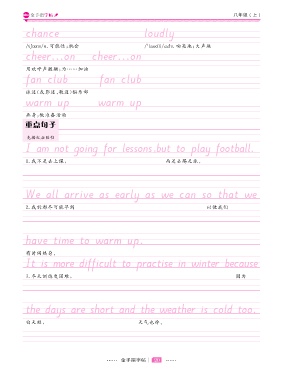 八年级(上)
chance loudly
/tʃɑːns/n. 可能性;机会 /ˈlaʊdli/adv. 响亮地;大声地
cheer...on cheer...on
用欢呼声激励;为……加油
fan club fan club
warm up warm up
热身;做准备活动
重点句子
I am not going for lessons,but to play football.
1.我不是去上课, 而是去踢足球。
We all arrive as early as we can so that we
2.我们都尽可能早到 以便我们
have time to warm up.
有时间热身。
It is more difficult to practise in winter because
3.冬天训练更困难, 因为
the days are short and the weather is cold too.
白天短, 天气也冷。